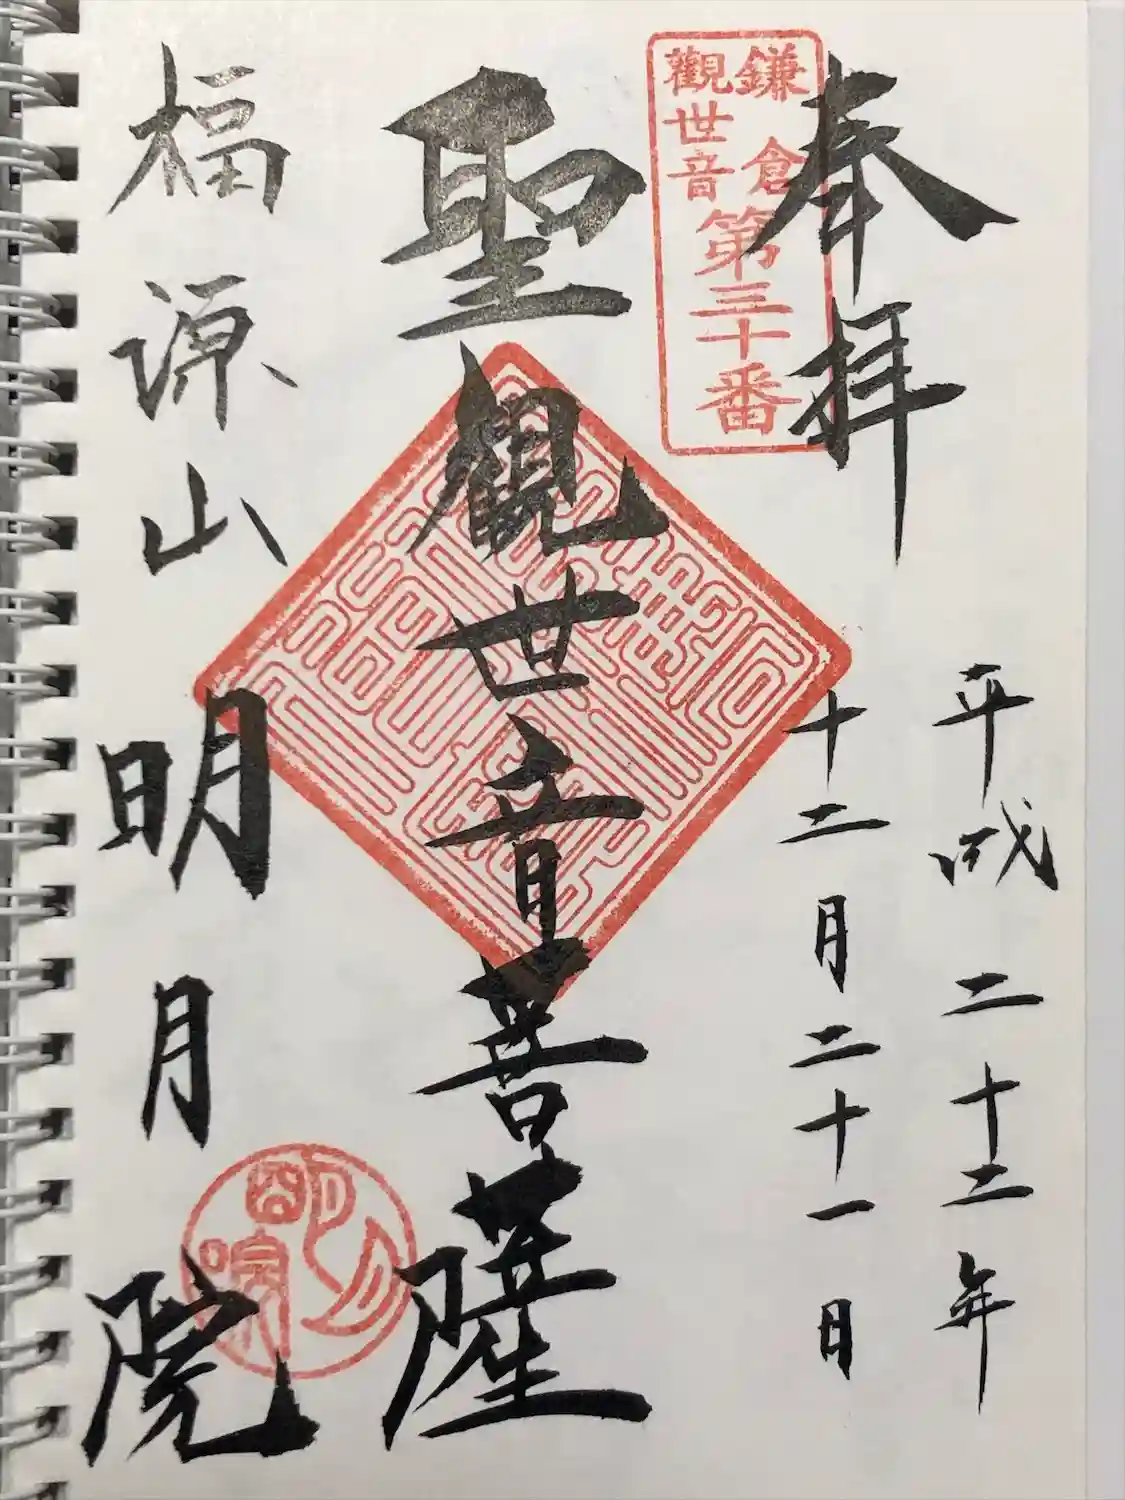 奉拝
平成二十二年
十二月二十一日
鎌倉
観世音
第三十番
聖観世音菩薩
福源山
明月院